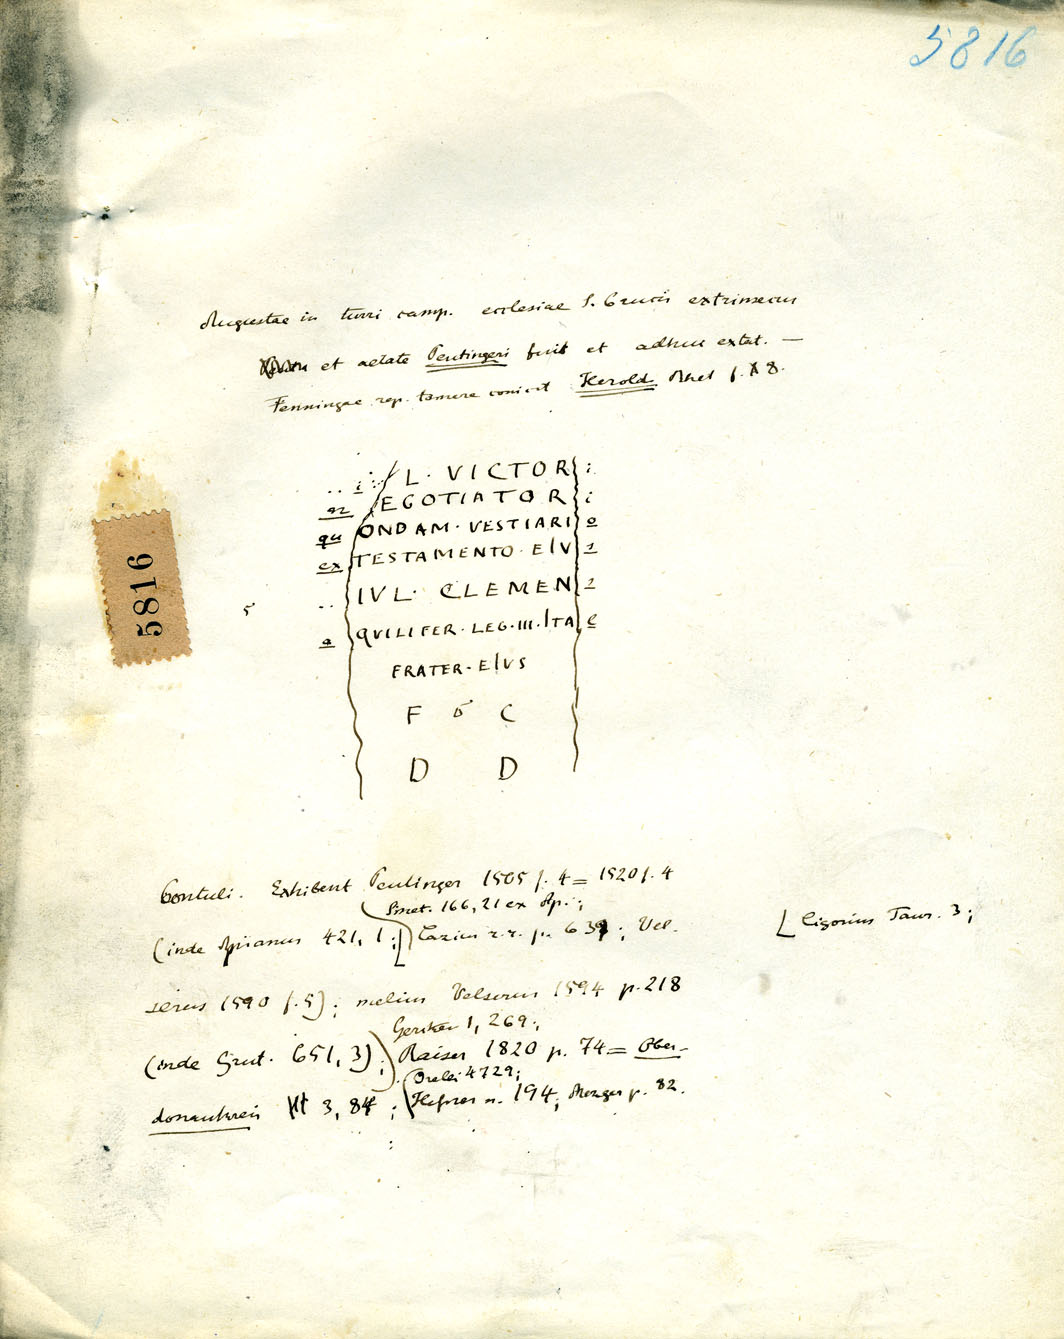 5816
Augustae in turri camp. ecclesiae S. Crucis extrinsecus
et aetate Peutingeri fuit et adhuc extat. —
Fenningae rep. temere coniecit Herold Rhet f. 8.
5816
.. i L. VICTOR i
n EGOTIATOR i
qu ONDAM. VESTIARI o
ex TESTAMENTO. EIV s
5 .. IVL. CLEMEN s
a QVILIFER. LEG. III. ITA l
FRATER. EIVS
F ♂ C
D D
Contuli. Exhibent Peutinger 1505 f. 4 = 1520 f. 4
Smet. 166, 21 ex Ap.;
(inde Apianus 421, 1; Lazius r. r. p. 639; Vel- [Ligorius Taur. 3;
serus 1590 f. 5); melius Velserus 1594 p. 218
Gerken 1, 269;
(inde Grut. 651, 3); Raiser 1820 p. 74 = Ober-
Orelli 4729;
donaukreis 3, 84; Hefner n. 194; Mezger p. 82.